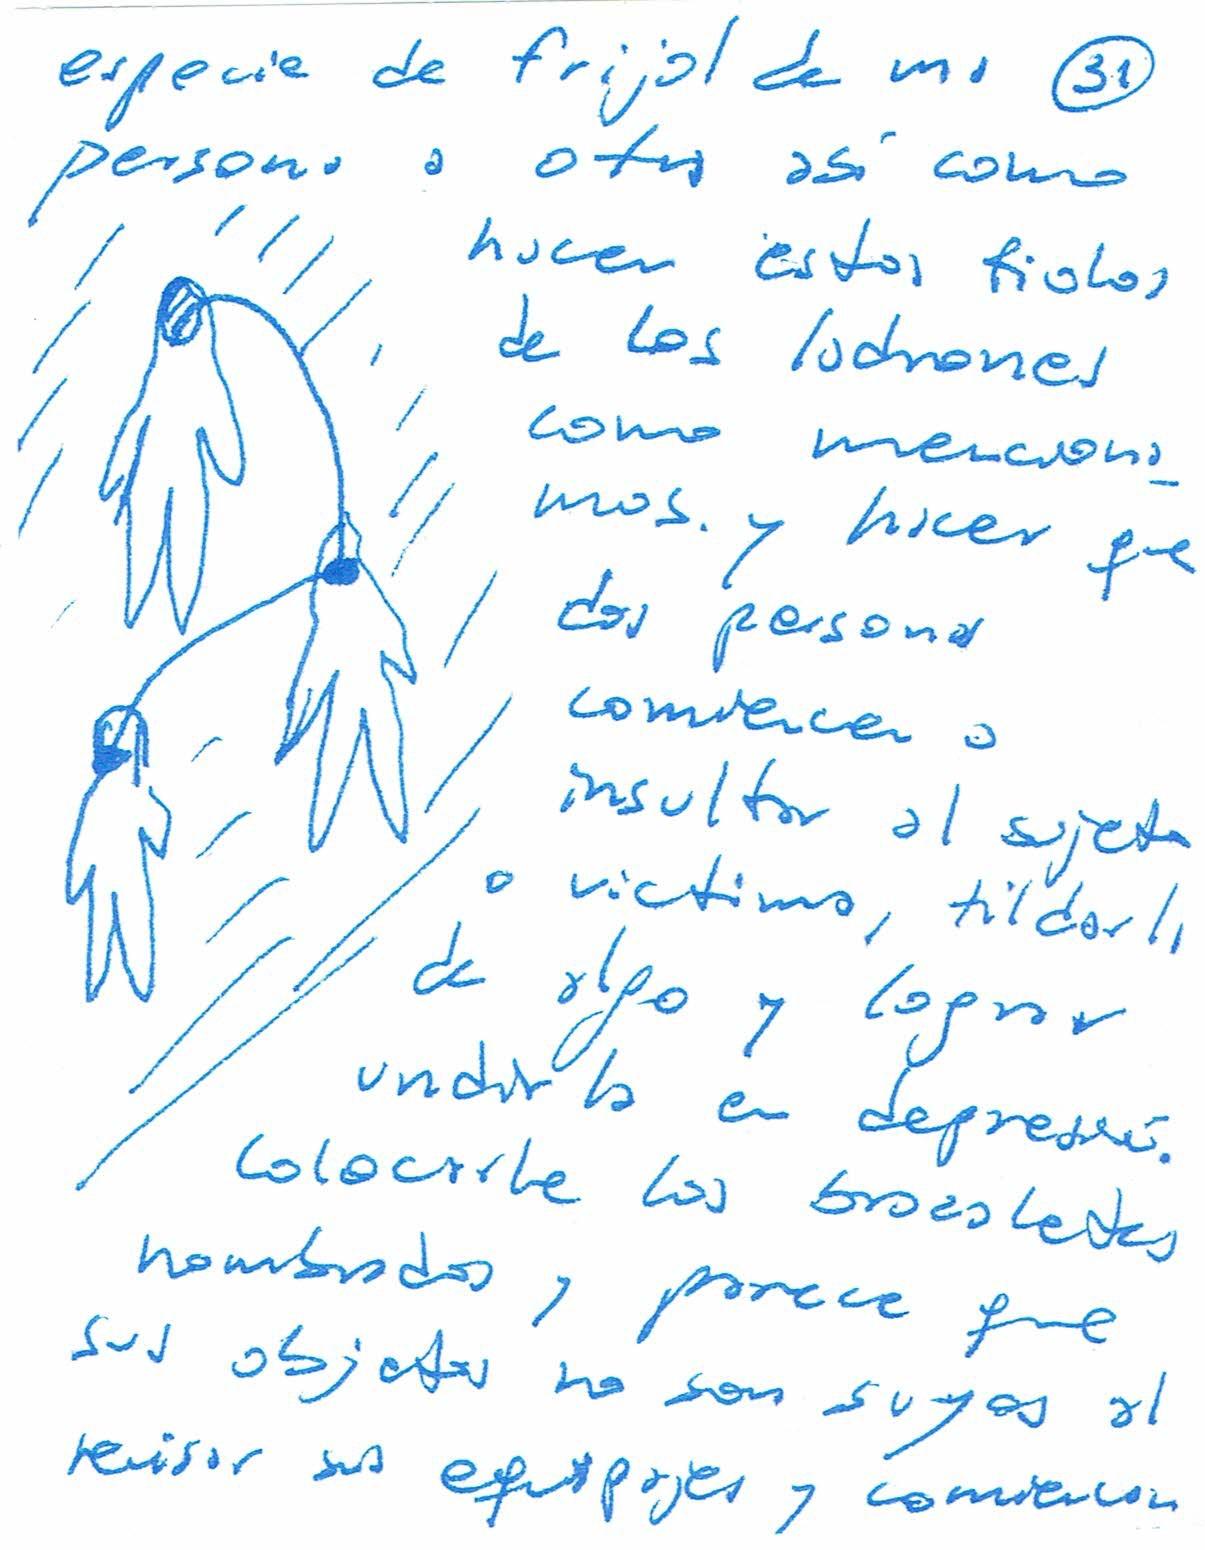 especie de frijol de una 31
persona a otra así como
hacen estos
de los ladrones
como menciona_
mos. y hacer que
dos personas
comiencen a
insultar al sujeto
o victima, tildarla
de algo y lograr
undirla en depresión.
Colocarle los brazaletes
nombrados, y parece que
sus objetos no son suyos al
revisar sus equipajes y comienzan